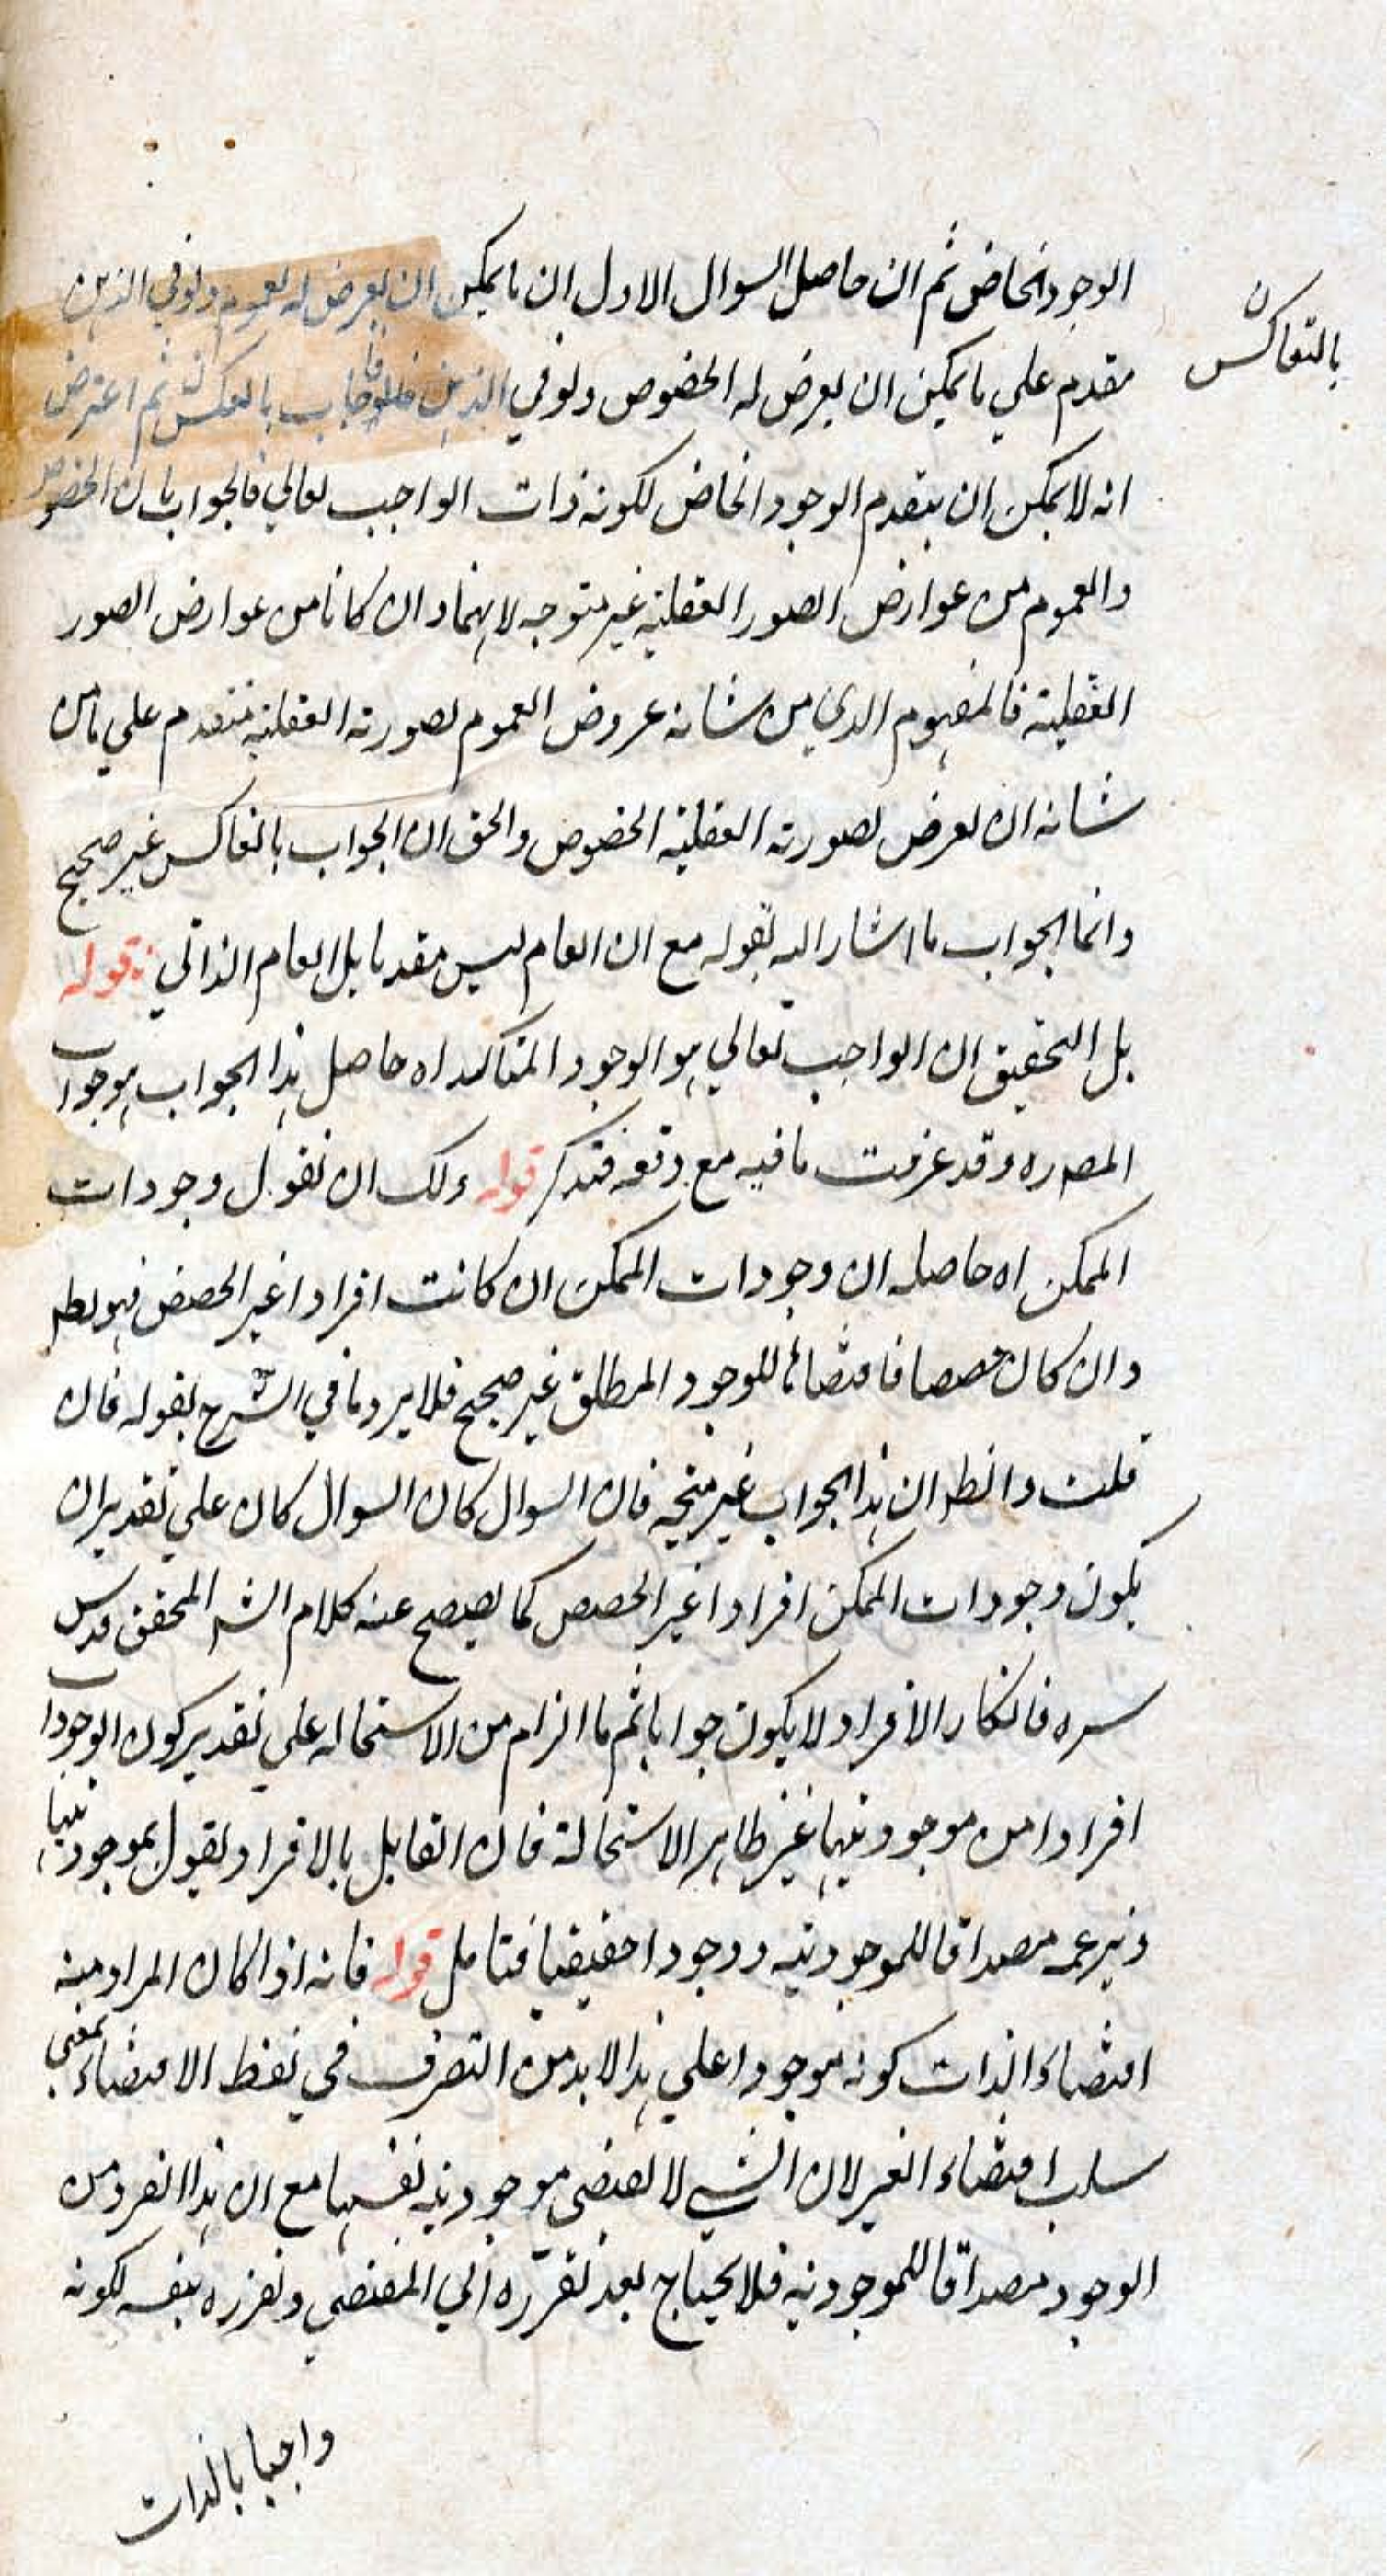 الوجود الخاص ثم ان حاصل السوال الاول ان ما يمكن ان يعرض له لعموم ولو في الذهن
بالتعاكس
مقدم علي ما يمكن ان يعرض له الخصوص ولو في الذهن فاجاب بالعكس ثم اعترض
انه لا يمكن ان يتقدم الوجود الخاص لكونه ذات الواجب تعالي فالجواب بان الخصوص
والعموم من عوارض الصور العقلية غير متوجه لانهما وان كانا من عوارض الصور
العقلية فالمفهوم الذي من شانه عروض العموم لصورته العقلية متقدم علي ما من
شانه ان يعرض لصورته العقلية الخصوص والحق ان الجواب بالتعاكس غير صحيح
وانما الجواب ما اشار اليه بقوله مع ان العام ليس مقدما بل العام الذاتي قوله
بل التحقيق ان الواجب تعالي هو الوجود المتاكد اه حاصل هذا الجواب هو جواب
المصدره وقد عرفت ما فيه مع دفعه فتذكر قوله ولك ان تقول وجودات
الممكن اه حاصله ان وجودات الممكن ان كانت افرادا غير الحصص فهو بط
وان كان حصصا فاقتضائها للوجود المطلق غير صحيح فلا يرد ما في الشرح بقوله فان
قلت والظ ان هذا الجواب غير متجه فان السوال كان السوال كان علي تقدير ان
يكون وجودات الممكن افرادا غير الحصص كما يفصح عنه كلام الشه المحقق قدس
سره فانكار الافراد لا يكون جوابا ثم ما الزام من الاستحاله علي تقدير كون الوجودات
افرادا من موجوديتها غير ظاهر الاستحالة فان القايل بالافراد يقول بموجوديتها
ويزعمه مصداقا للموجودية ووجودا حقيقيا فتامل قوله فانه اذا كان المراد منه
اقتضاء الذات كونه موجودا علي هذا لا بد من التصرف في لفظ الاقتضاء بمعني
سلب اقتضاء الغير لان الشي لا يقتضي موجودية نفسها مع ان هذا الفرد من
الوجود مصداقا للموجودية فلا يحتاج بعد تقرره الي المقتضي وتقرره بنفسه لكونه
واجبا بالذات